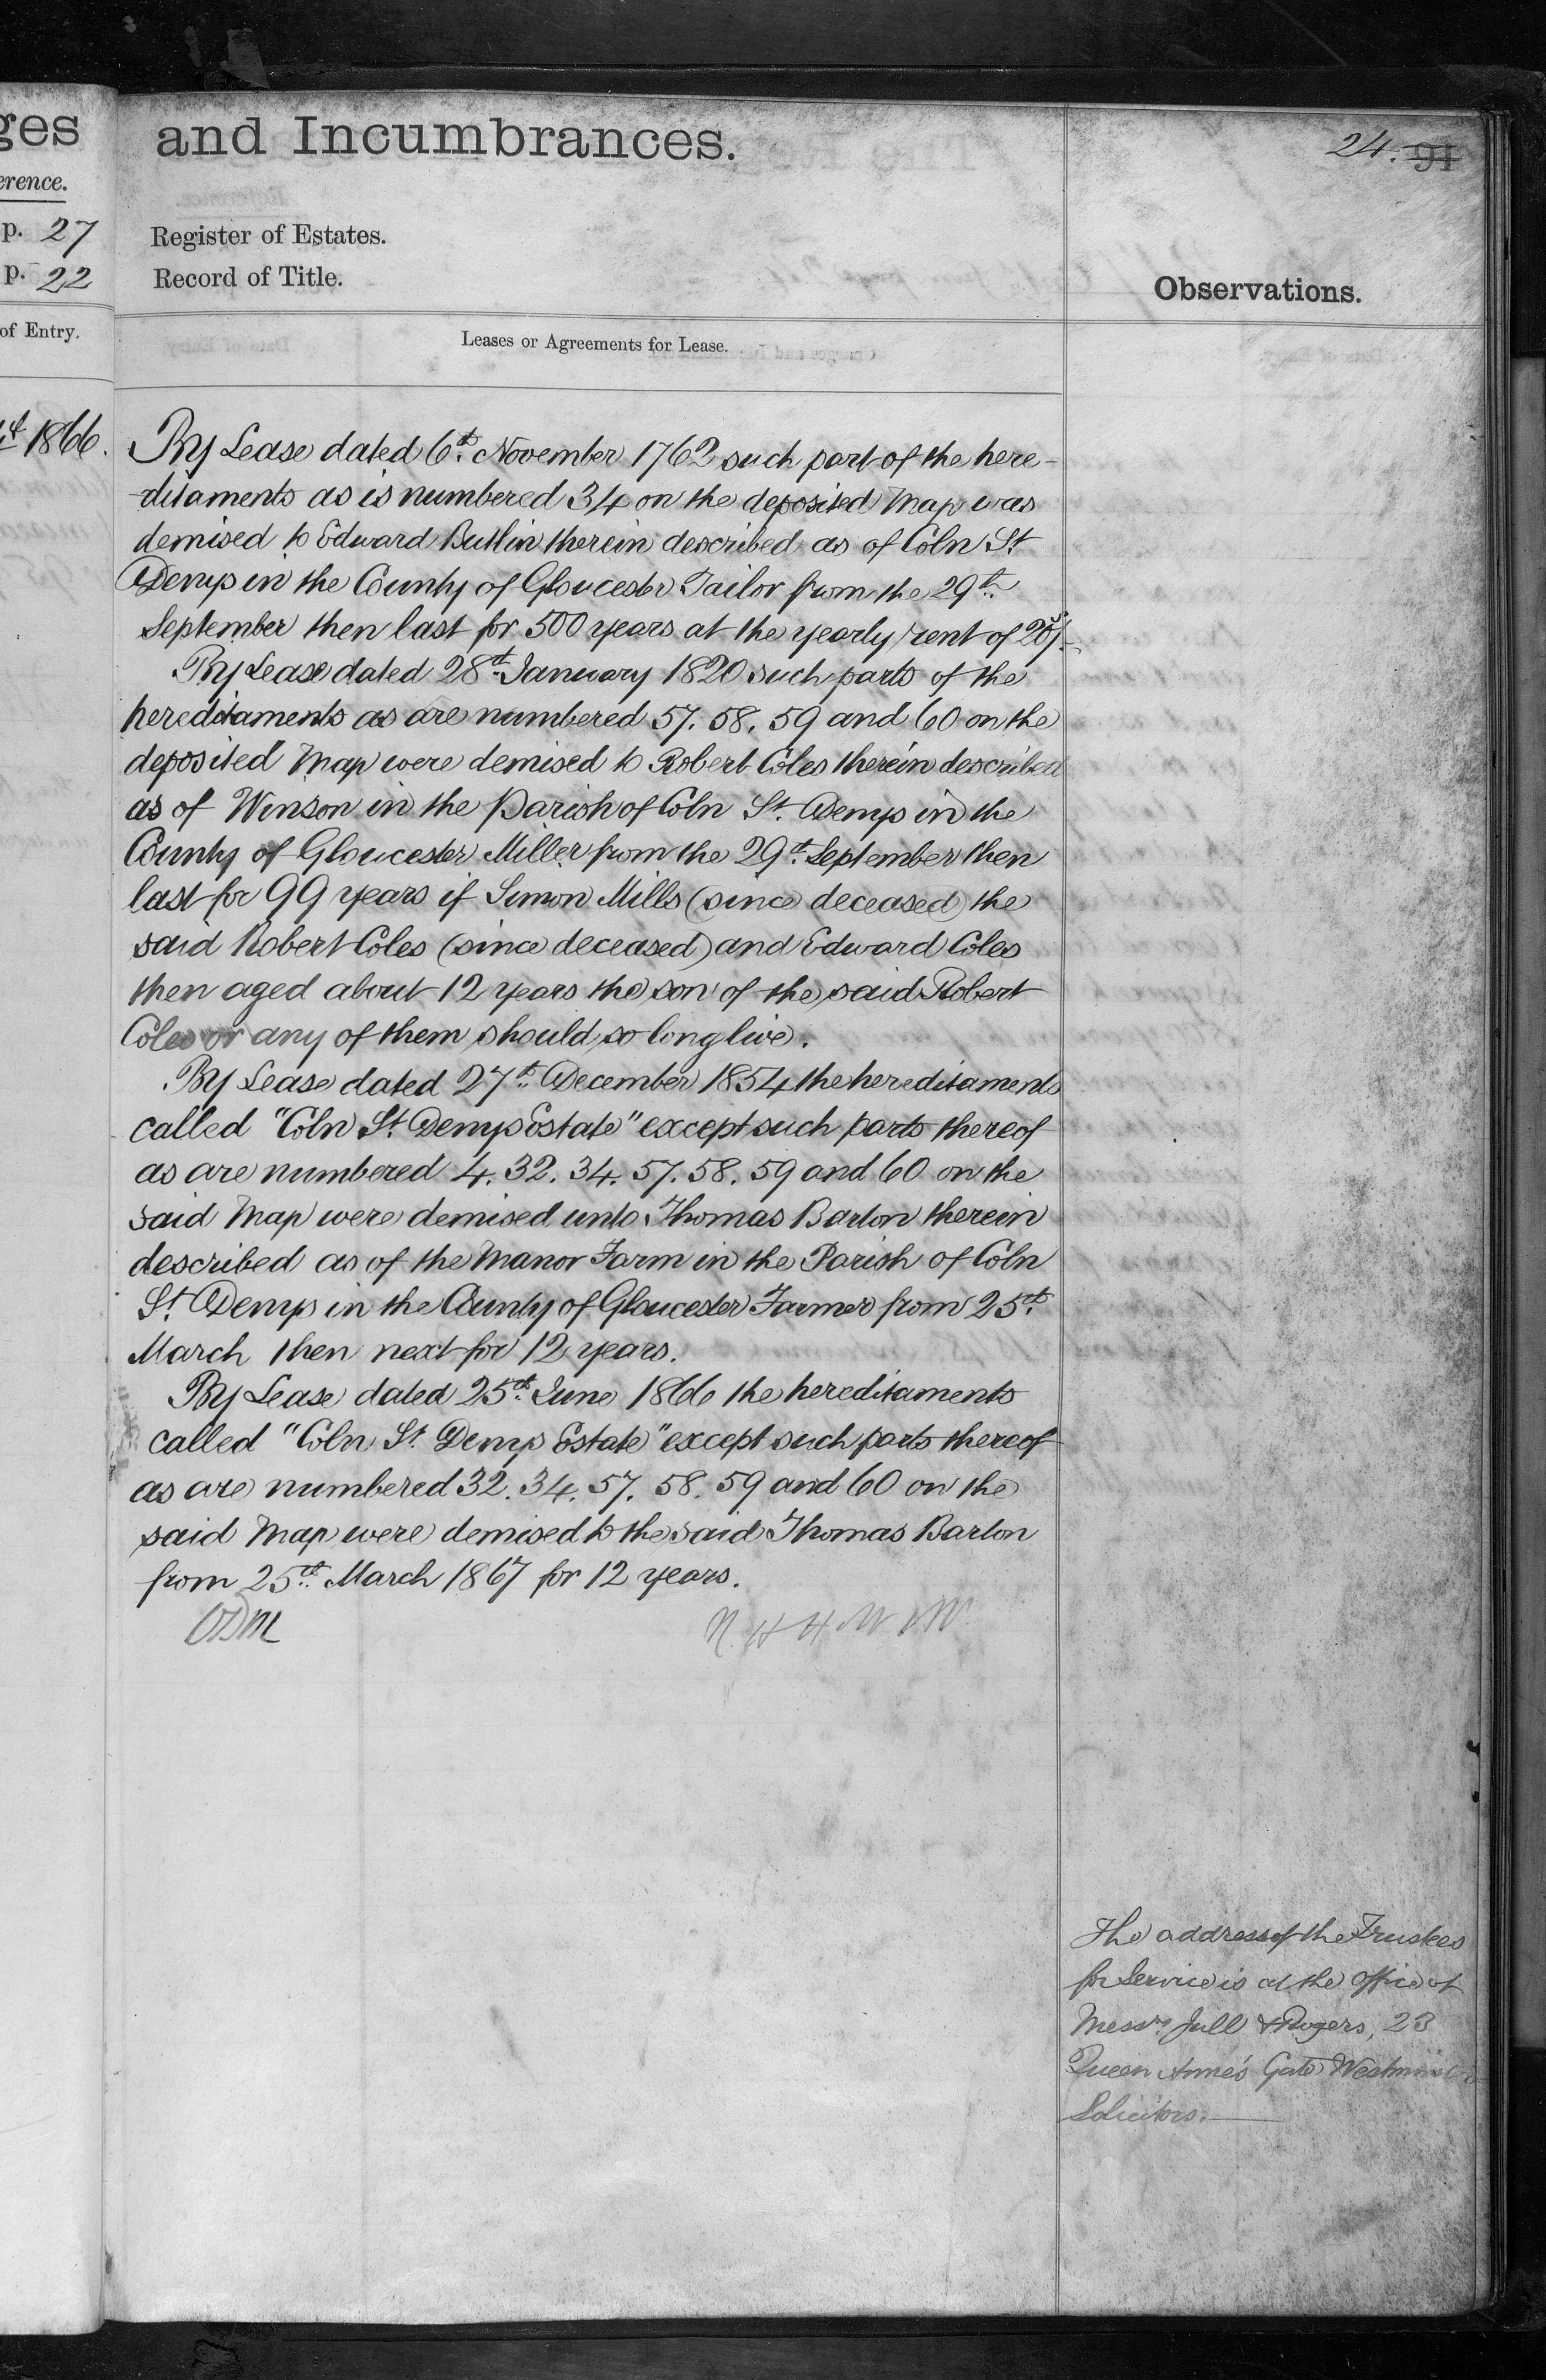 ges
erence.
p. 27
p. 22
of Entry.
1866.
and Incumbrances.
24. 91
Register of Estates.
Record of Title.
Observations.
Leases or Agreements for Lease.
By Lease dated 6th November 1762 such part of the here-
-ditaments as is numbered 34 on the deposited Map was
demised to Edward Butlin therein described as of Coln St
Denys in the County of Gloucester Tailor from the 29th
September then last for 500 years at the yearly rent of
By Lease dated 28th January 1820 such parts of the
hereditaments as are numbered 57. 58. 59 and 60 on the
deposited Map were demised to Robert Coles therein described
as of Winson in the Parish of Coln St. Denys in the
County of Gloucester Miller from the 29th September then
last for 99 years if Simon Mills (since deceased) the
said Robert Coles (since deceased) and Edward Coles
then aged about 12 years the son of the said Robert
Coles or any of them should so long live.
By Lease dated 27th December 1854 the hereditaments
called "Coln St. Denys Estate" except such parts thereof
as are numbered 4. 32. 34. 57. 58. 59 and 60 on the
said Map were demised unto Thomas Barton therein
described as of the Manor Farm in the Parish of Coln
St. Denys in the County of Gloucester Farmer from 25th
March then next for 12 years.
By Lease dated 25th June 1866 the hereditaments
called "Coln St. Denys Estate" except such parts thereof
as are numbered 32. 34. 57. 58. 59 and 60 on the
said Map were demised to the said Thomas Barton
from 25th March 1867 for 12 years.
The address of the Trustees
for Service is at the office of
Messrs. Jull & Rogers, 23
Queen Anne's Gate Westminster
Solicitors.